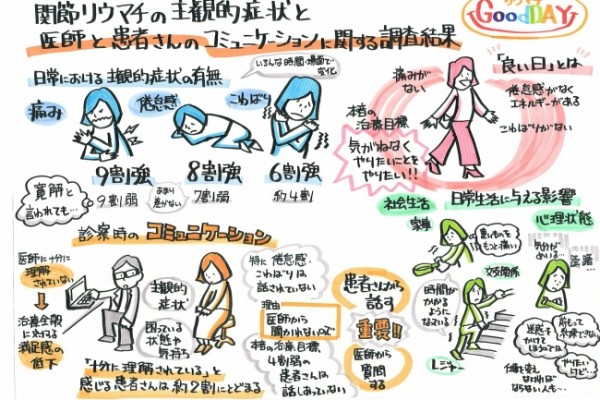 関節リウマチの主観的症状と
医師と患者さんのコミュニケーションに関する調査結果
リウマチ
GOODDAY
日常における主観的症状の有無
いろんな時間・場面で
変化
痛み
倦怠感
こわばり
9割強
8割強
6割強
寛解と
言われても…
9割弱
あまり
差がない
7割弱
約4割
「良い日」とは
痛みが
ない
倦怠感がなく
エネルギーがある
こわばりがない
本音の
治療目標
気がねなく
やりたいことを
やりたい!!
診察時のコミュニケーション
医師に十分に
理解
されていない
治療全般
に対する
満足感の
低下
主観的
症状
困っている
状態や
気持ち
「十分に理解されている」と
感じる患者さんは約2割にとどまる
特に倦怠感・
こわばりは
話されていない
理由
医師から
聞かれないので
本音の治療目標
4割弱の
患者さんは
話しあっていない
患者さんから
話す
重要!!
医師から
質問する
日常生活に与える影響
社会生活
心理状態
家事
重いものを
もつと痛い
時間が
かかる
ように
なっている
交友関係
レジャー
気分が
めいる…
迷惑を
かけて
ほうっては
仕事を変え
なければ
ならない人も…
前もって
約束できない
やりたい
けど…